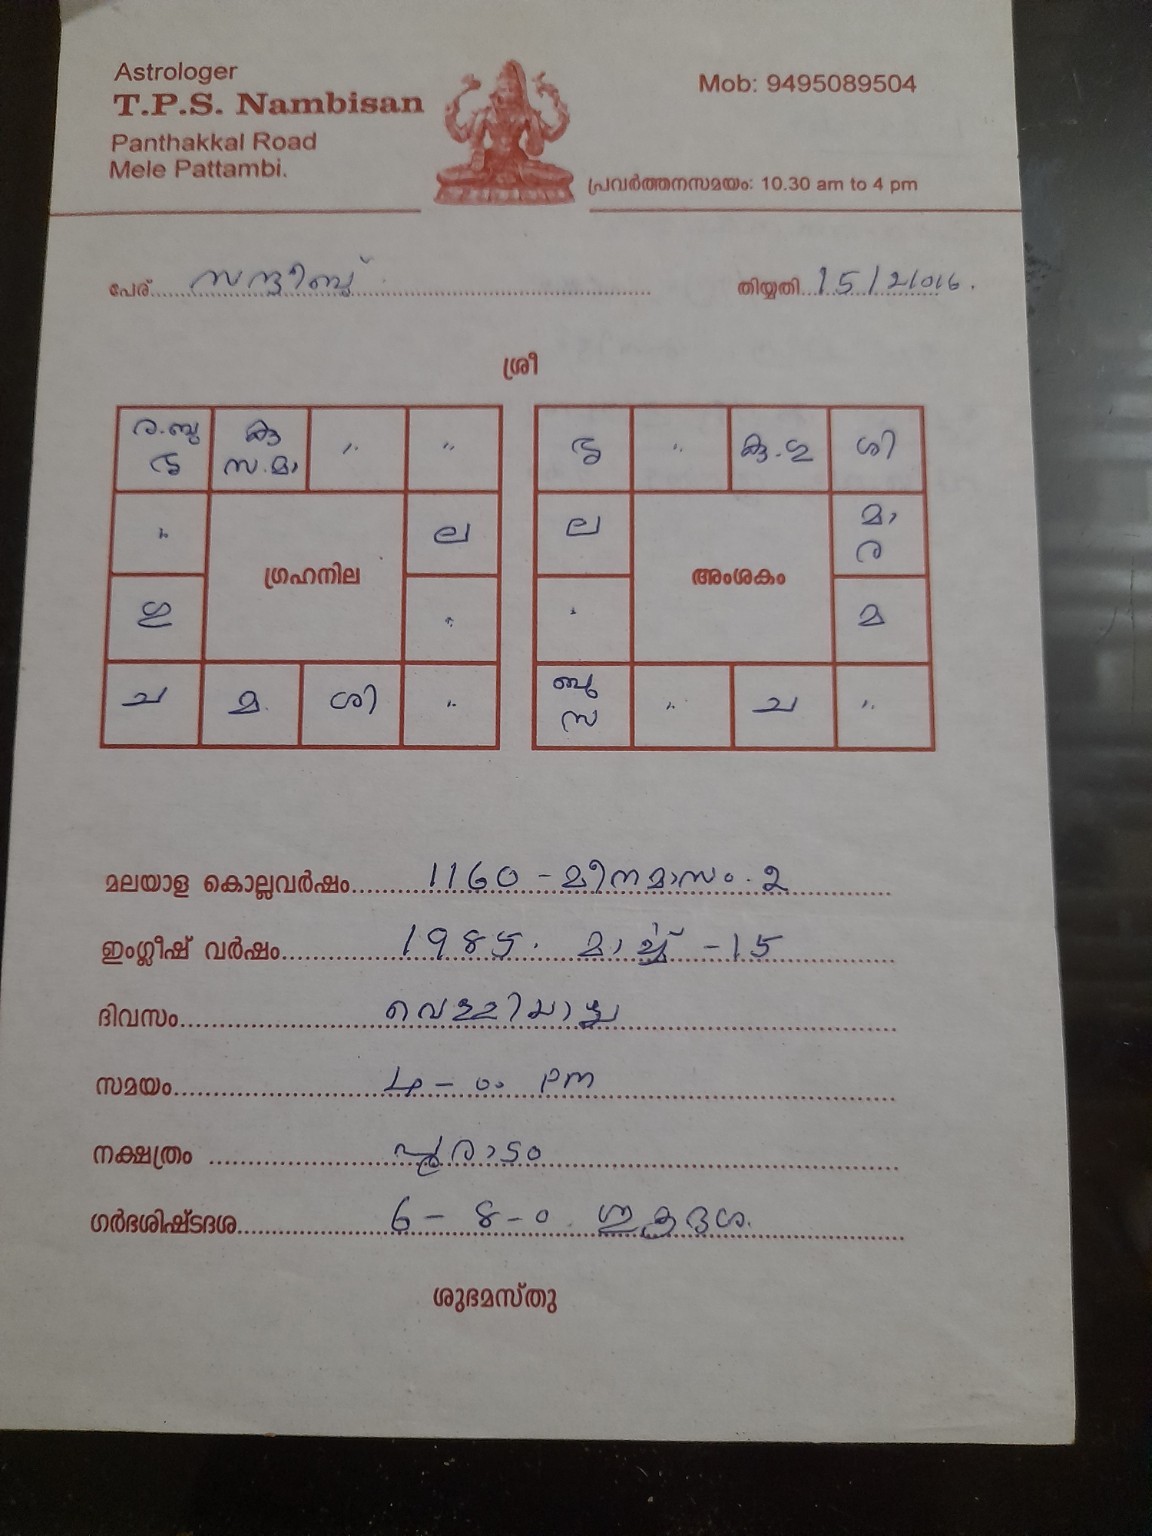 Astrologer
T.P.S. Nambisan
Panthakkal Road
Mele Pattambi.
Mob: 9495089504
പ്രവർത്തനസമയം: 10.30 am to 4 pm
പേര് സന്ദീബ്
തിയ്യതി 15/2/016.
ശ്രീ
ര.ബു കു " "
ഭൃ സ.മാ
" ല
ഗ്രഹനില
ഗു "
ച മ ശി "
ഭൃ " കു.ഗു ശി
ല മാ
ര
അംശകം
" മ
ബു " ച "
സ
മലയാള കൊല്ലവർഷം 1160 - മീനമാസം. 2
ഇംഗ്ലീഷ് വർഷം 1985. മാർച്ച് - 15
ദിവസം വെള്ളിയാഴ്ച
സമയം 4 - 00 pm
നക്ഷത്രം പൂരാടം
ഗർദശിഷ്ടദശ 6 - 8 - 0 ശുക്രദശ.
ശുഭമസ്തു